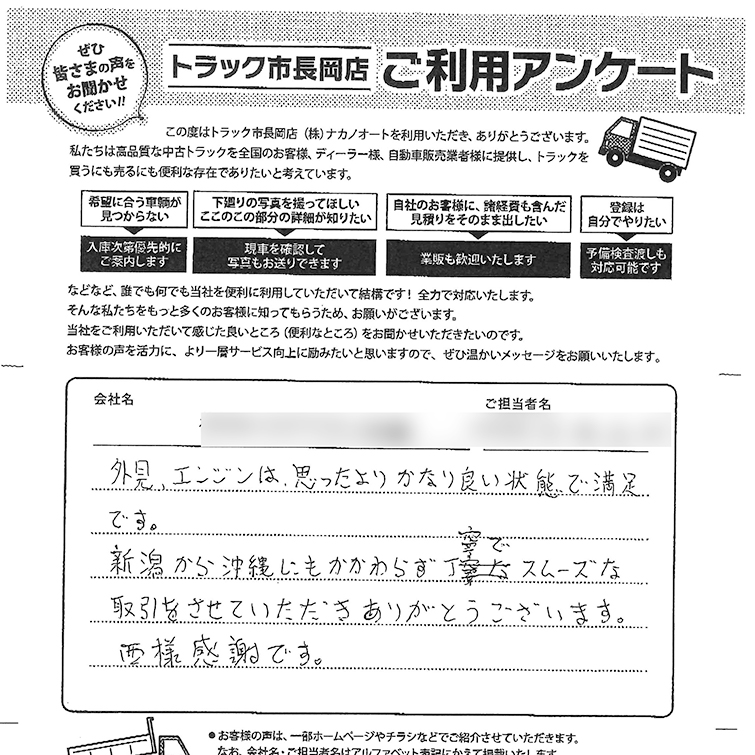 ぜひ
皆さまの声を
お聞かせ
ください!!
トラック市長岡店 ご利用アンケート
この度はトラック市長岡店（株）ナカノオートを利用いただき、ありがとうございます。
私たちは高品質な中古トラックを全国のお客様、ディーラー様、自動車販売業者様に提供し、トラックを
買うにも売るにも便利な存在でありたいと考えています。
希望に合う車輌が
見つからない
入庫次第優先的に
ご案内します
下廻りの写真を撮ってほしい
ここのこの部分の詳細が知りたい
現車を確認して
写真もお送りできます
自社のお客様に、諸経費も含んだ
見積りをそのまま出したい
業販も歓迎いたします
登録は
自分でやりたい
予備検査渡しも
対応可能です
などなど、誰でも何でも当社を便利に利用していただいて結構です！全力で対応いたします。
そんな私たちをもっと多くのお客様に知ってもらうため、お願いがございます。
当社をご利用いただいて感じた良いところ（便利なところ）をお聞かせいただきたいのです。
お客様の声を活力に、より一層サービス向上に励みたいと思いますので、ぜひ温かいメッセージをお願いいたします。
会社名
ご担当者名
外見、エンジンは、思ったよりかなり良い状態で満足
です。
新潟から沖縄にもかかわらず丁寧でスムーズな
取引をさせていただきありがとうございます。
西様感謝です。
●お客様の声は、一部ホームページやチラシなどでご紹介させていただきます。
なお、会社名・ご担当者名はアルファベット表記にかえて掲載いたします